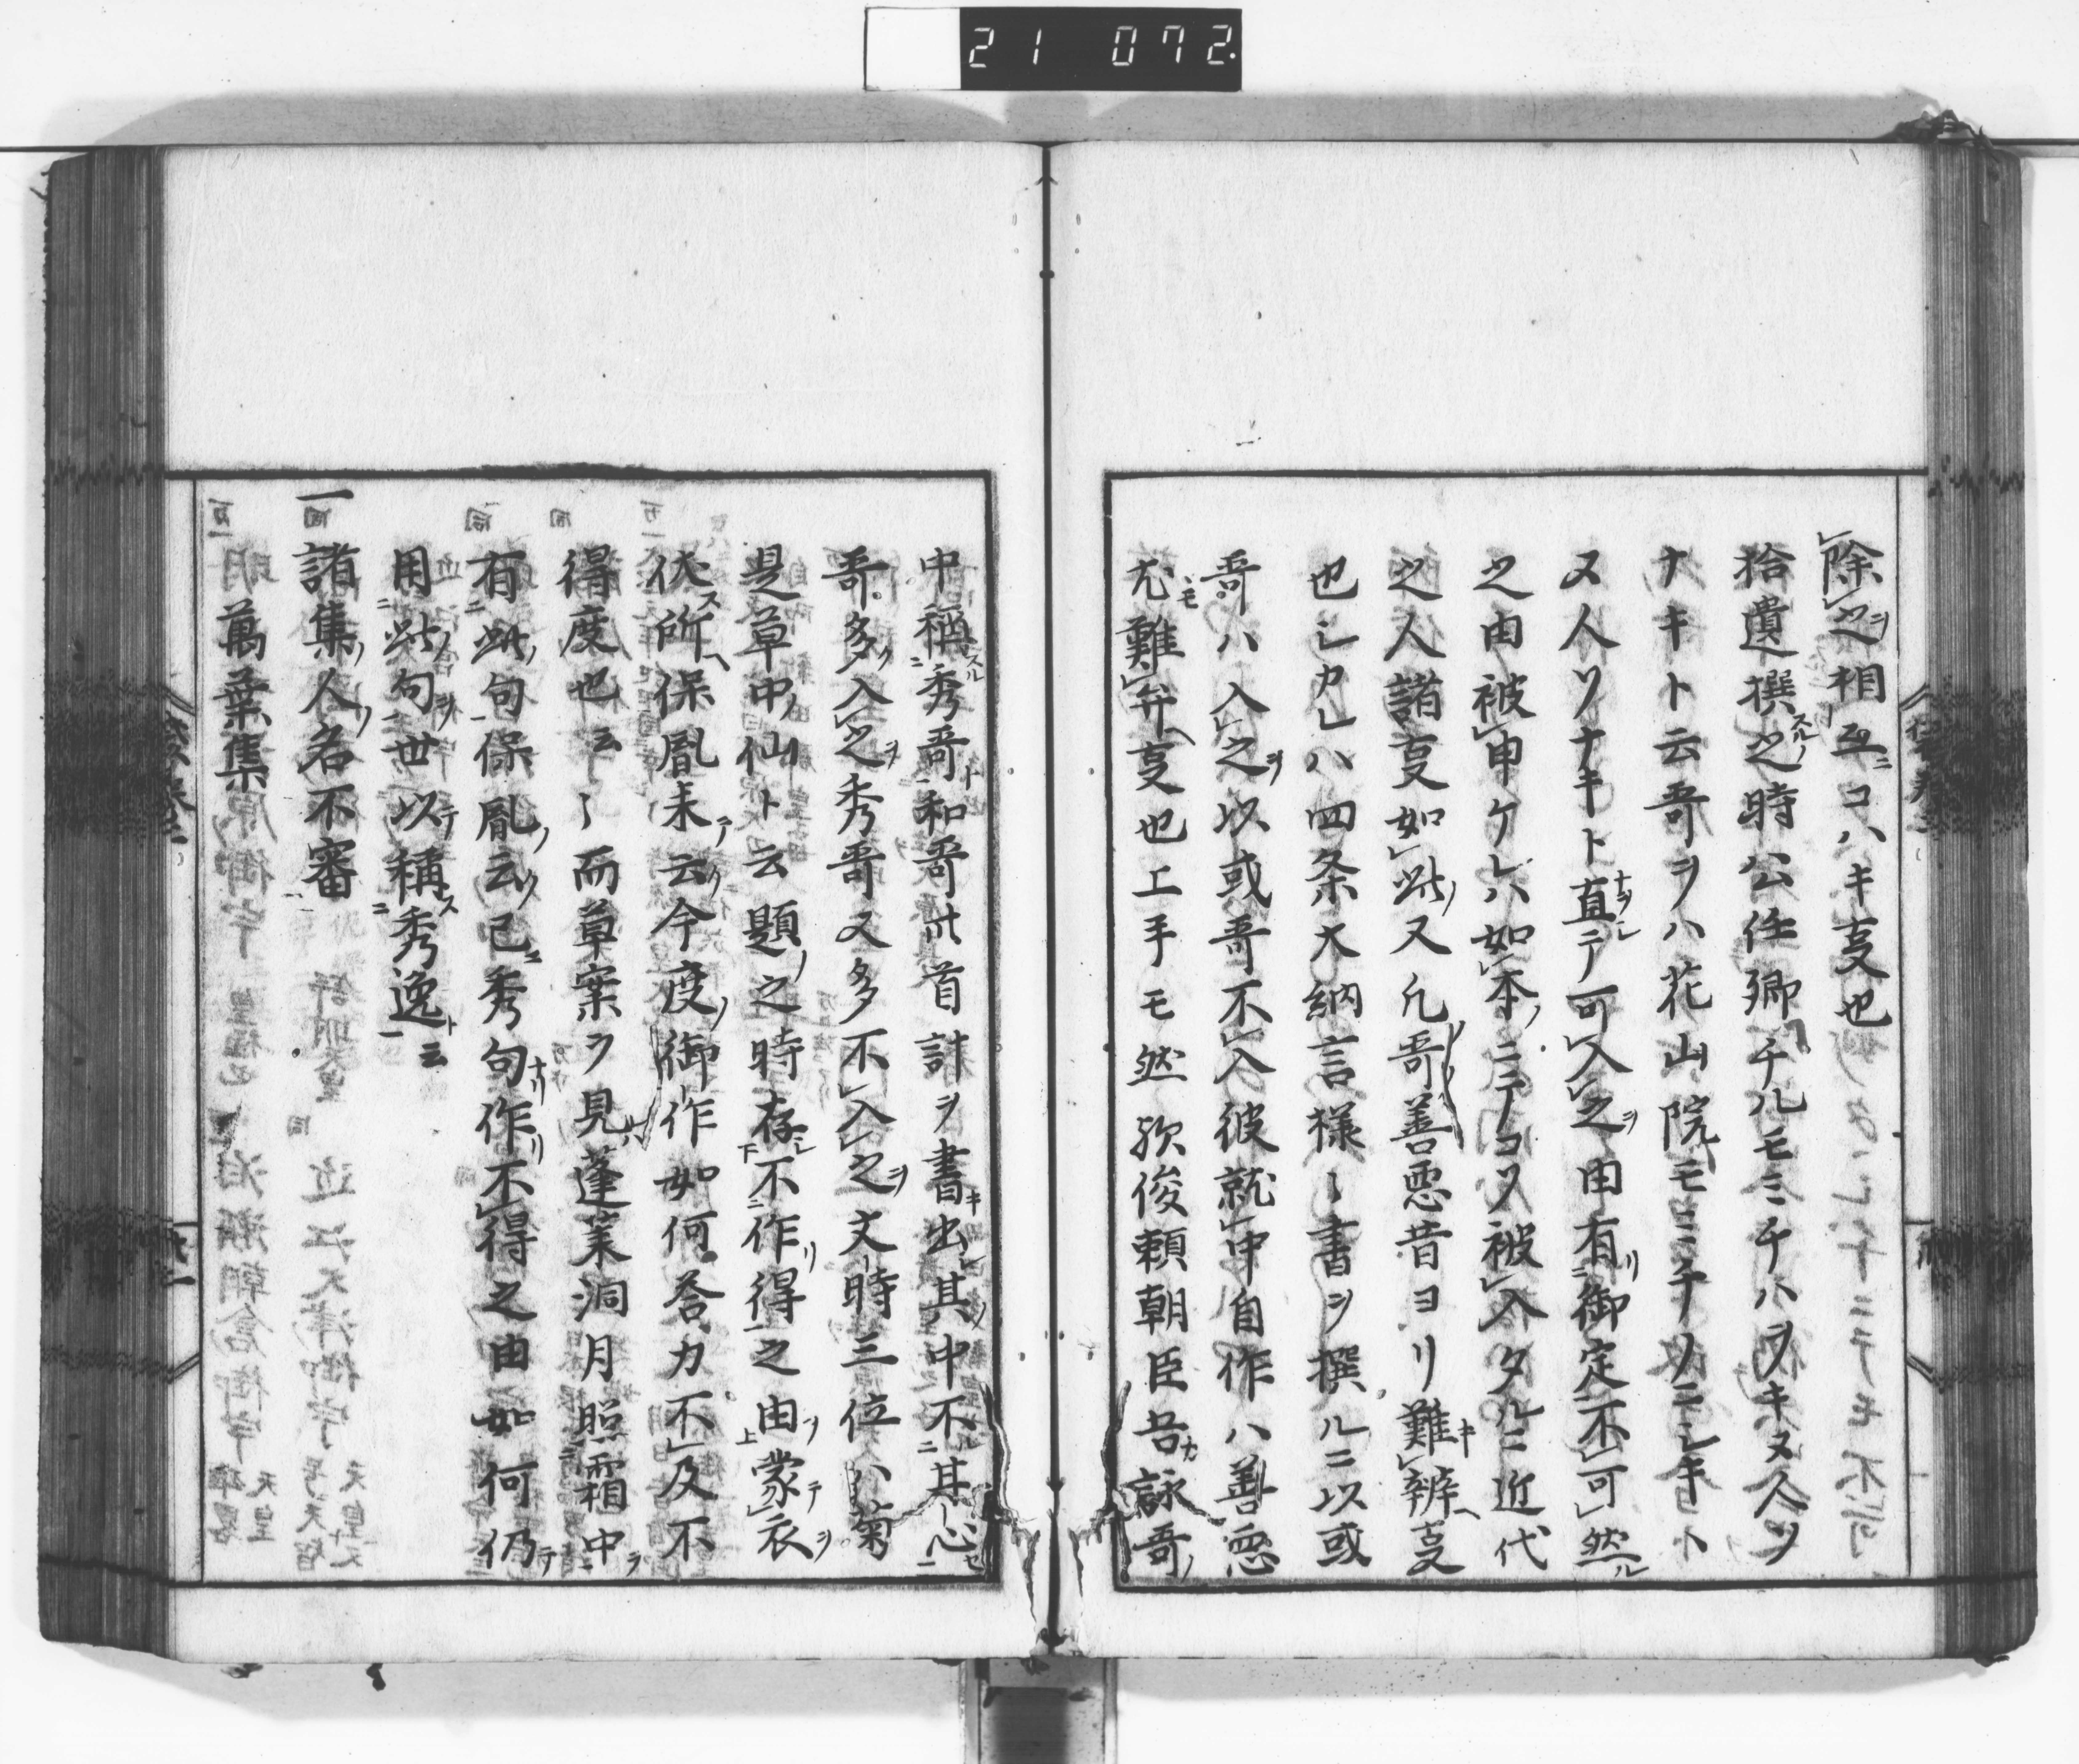 21 072
除之相互コハキ夏也
拾遺撰之時公任卿千ルモミチハヲキヌ人ソ
ナキト云哥ヲハ花山院モミチノニシキト
又人ソナキト直テ可入之由有御定不可然
之由被申ケレハ如本ニテコソ被入タルニ近代
之人諸夏如此又凡哥善悪昔ヨリ難辨夏
也シカレハ四条大納言様〻書ヲ撰ルニ以或
哥ハ入之以或哥不入彼就中自作ハ善悪
尤難弁夏也上手モ然欤俊頼朝臣吾詠哥
中稱秀哥和哥廿首計ヲ書出其中不甚心
哥多入之秀哥又多不入之丈時三位ハ菊
是草中仙ト云題之時存不作得之由蒙衣
伏所保胤来云今度御作如何答力不及不
得度也云〻而草案ヲ見蓬莱洞月照霜中
有此句保胤云已秀句作不得之由如何仍
用此句世以稱秀逸云
一諸集人名不審
萬葉集